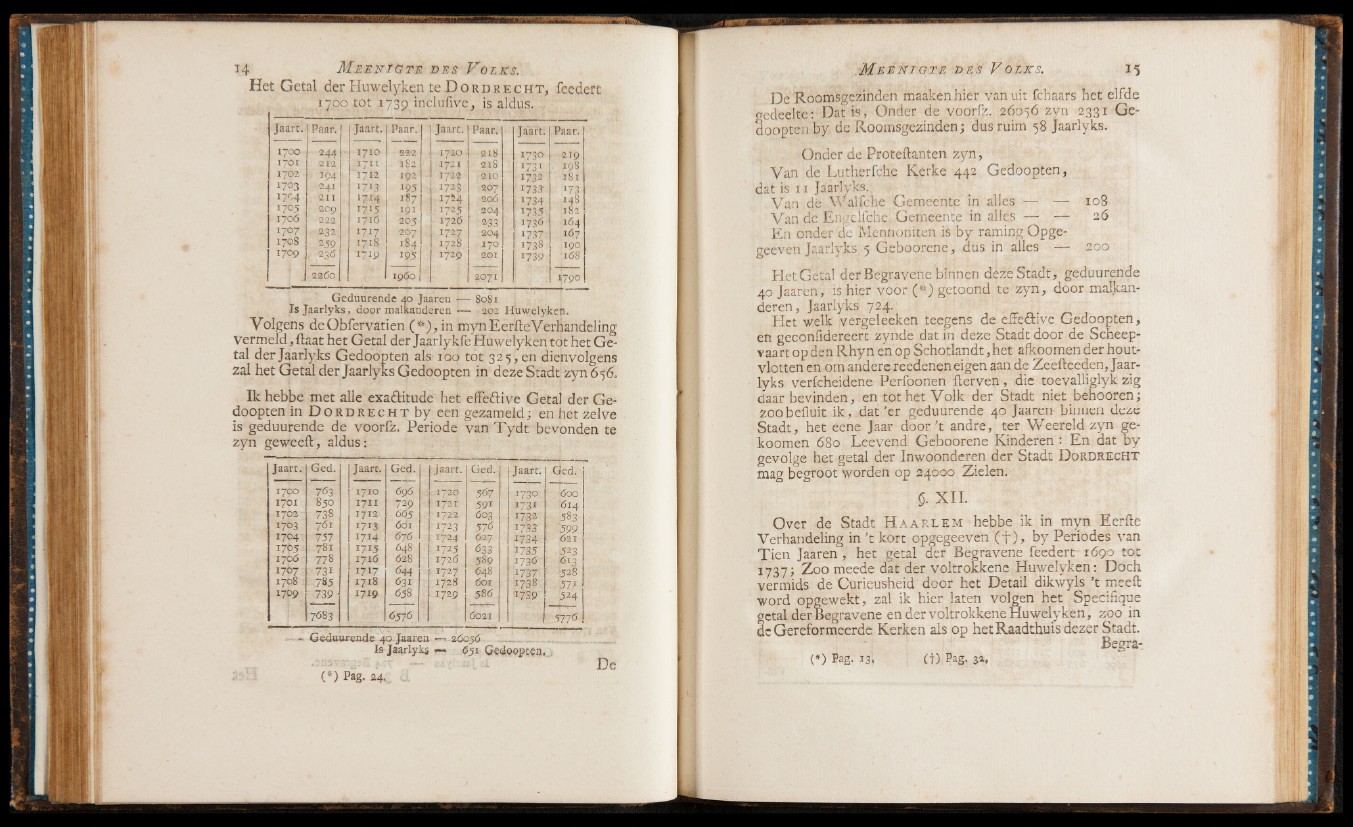 14 MEENIGTE DES VOLKS.
Het Getal der Huwelyken te DORDRECHT, ſeedert
1700 tot 1739 incluſive, is aldus.
Jaart. Paar. Jaart. Paar. Jaart. Paar. Jaart. Paar.
1700 244 1710 222 1720 218 1730 219
1701 212 1711 182 1721 218 1731 198
1702 194 1712 192 1722 210 1732 181
1703 241 1713 195 1723 207 1733 173
1704 211 1714 187 1724 206 1734 148
1705 209 1715 191 1725 204 1735 182
1706 222 1716 205 1726 233 1736 164
1707 232 1717 207 1727 204 1737 167
1708 259 1718 184 1728 170 1738 190
1709 236 1719 195 1729 201 1739 168
2260 1960 2071 1790
Geduurende 40 Jaaren — 8081
Is Jaarlyks, door malkanderen — 202 Huwelyken.
Volgens de Obſervatien (*), in myn Eerſte Verhandeling
vermeld, ſtaat het Getal der Jaarlykſe Huwelyken tot het Ge-
tal der Jaarlyks Gedoopten als 100 tot 325, en dienvolgens
zal het Getal der Jaarlyks Gedoopten in deze Stadt zyn 656.
Ik hebbe met alle exactitude het effective Getal der Ge-
doopten in DORDRECHT by een gezameld; en het zelve
is geduurende de voorſz. Periode van Tydt bevonden te
zyn geweeſt, aldus:
Jaart. Ged. Jaart. Ged. Jaart. Ged. Jaart. Ged.
1700 763 1710 696 1720 567 1730 600
1701 850 1711 729 1721 591 1731 614
1702 738 1712 665 1722 603 1732 583
1703 761 1713 601 1723 576 1733 599
1704 757 1714 676 1724 627 1734 621
1705 781 1715 648 1725 633 1735 523
1706 778 1716 628 1726 589 1736 613
1707 731 1717 644 1727 648 1737 528
1708 785 1718 631 1728 601 1738 571
1709 739 1719 658 1729 586 1739 524
7683 6576 6021 5776
Geduurende 40 Jaaren — 26056
Is Jaarlyks — 651 Gedoopten.
De
(*) Pag. 24.
MEENIGTE DES VOLKS. 15
De Roomsgezinden maaken hier van uit ſchaars het elfde
gedeelte: Dat is, Onder de voorſz. 26056 zyn 2331 Ge-
doopten by de Roomsgezinden; dus ruim 58 Jaarlyks.
Onder de Proteſtanten zyn,
Van de Lutherſche Kerke 442 Gedoopten,
dat is 11 Jaarlyks.
Van de Walſche Gemeente in alles — — 108
Van de Engelſche Gemeente in alles — — 26
En onder de Mennoniten is by raming Opge-
geeven Jaarlyks 5 Geboorene, dus in alles — 200
Het Getal der Begravene binnen deze Stadt, geduurende
40 Jaaren, is hier voor (*) getoond te zyn, door malkan-
deren, Jaarlyks 724.
Het welk vergeleeken teegens de effective Gedoopten,
en geconſidereert zynde dat in deze Stadt door de Scheep-
vaart op den Rhyn en op Schotlandt, het afkoomen der hout-
vlotten en om andere reedenen eigen aan de Zeeſteeden, Jaar-
lyks verſcheidene Perſoonen ſterven, die toevalliglyk zig
daar bevinden, en tot het Volk der Stadt niet behooren;
zoo beſluit ik, dat 'er geduurende 40 Jaaren binnen deze
Stadt, het eene Jaar door 't andre, ter Weereld zyn ge-
koomen 680 Leevend Geboorene Kinderen: En dat by
gevolge het getal der Inwoonderen der Stadt DORDRECHT
mag begroot worden op 24000 Zielen.
§. XII.
Over de Stadt HAARLEM hebbe ik in myn Eerſte
Verhandeling in 't kort opgegeeven (†), by Periodes van
Tien Jaaren, het getal der Begravene ſeedert 1690 tot
1737; Zoo meede dat der voltrokkene Huwelyken: Doch
vermids de Curieusheid door het Detail dikwyls 't meeſt
word opgewekt, zal ik hier laten volgen het Specifique
getal der Begravene en der voltrokkene Huwelyken, zoo in
de Gereformeerde Kerken als op het Raadthuis dezer Stadt.
Begra-
(*) Pag. 13. (†) Pag. 32.